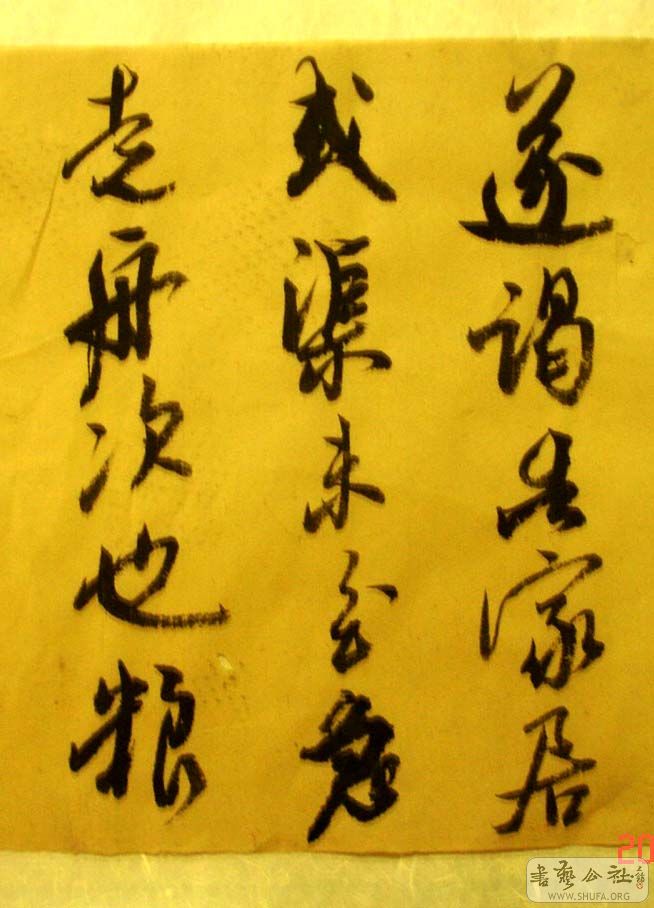 遂謁告家居
或渠未
再次也粮
20
書藝公社
WWW.SHUFA.ORG